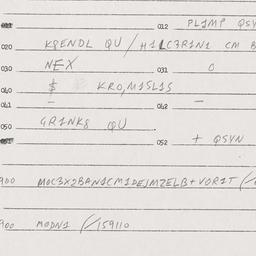 012 PL1MP QSY
020 KQENDL QU / H1LC3R1N1 CM B
030 NEX 031 0
040 $ KRO,M1SL1S
041 - 042 -
050 GR1NK8 QU
052 + QSYN
900 MOC3X2BAN1CM1DEJMZELB+VOR1T (/
900 MODN1 (/159110